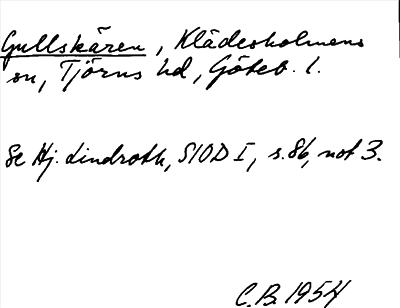 Gullskären, Klädesholmens
sn, Tjörns hd, Göteb. l.
Se Hj. Lindroth, SIOD I, s. 86, not 3.
C.B. 1954